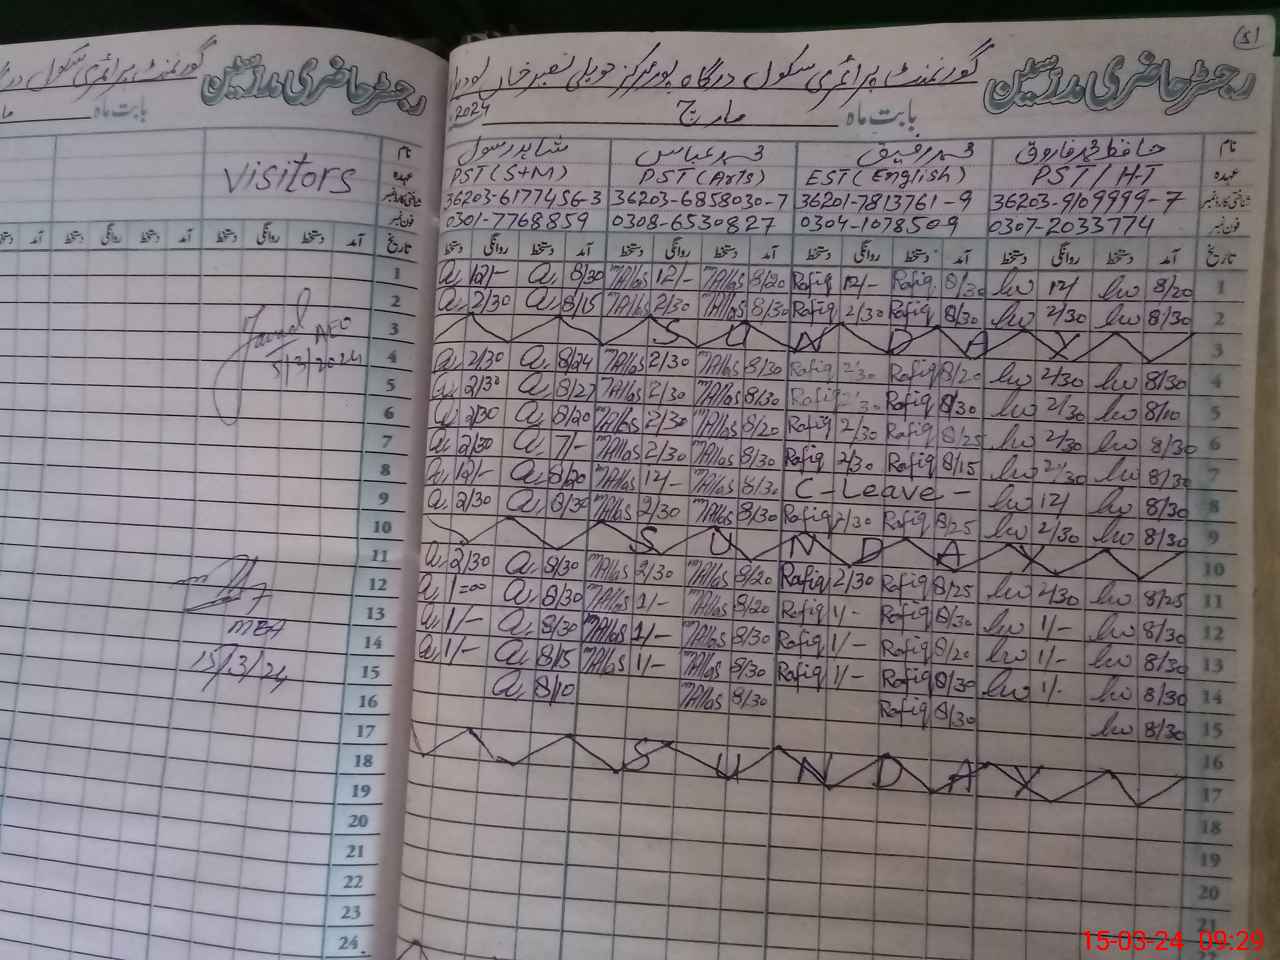 رجسٹر حاضری مدرسین گورنمنٹ پرائمری سکول
بابت ماہ
نام
visitors
عہدہ
شناختی کارڈ نمبر
فون نمبر
تاریخ آمد دستخط روانگی دستخط آمد دستخط روانگی دستخط
1
2
3
AEO
4
5/3/2024
5
6
7
8
9
10
11
12
13
MEA
14
15/3/24
15
16
17
18
19
20
21
22
23
24
رجسٹر حاضری مدرسین گورنمنٹ پرائمری سکول درگاہ
بابت ماہ مارچ 2024
نام حافظ محمد فاروق محمد رفیق محمد عباس شاہد رسول
عہدہ PST/H-T EST (English) PST (Arts) PST (S+M)
شناختی کارڈ نمبر 36203-9109999-7 36201-7813761-9 36203-6858030-7 36203-6177456-3
فون نمبر 0307-2033774 0304-1078509 0308-6530827 0301-7768859
تاریخ آمد دستخط روانگی دستخط آمد دستخط روانگی دستخط آمد دستخط روانگی دستخط آمد دستخط روانگی دستخط
12/- 8/30 MAbbS 12/- MAbbS 8/20 Rafiq 12/- Rafiq 8/30 12/ 8/20 1
2/30 8/15 MAbbS 2/30 MAbbS 8/30 Rafiq 2/30 Rafiq 8/30 2/30 8/30 2
SUNDAY 3
2/30 8/24 MAbbS 2/30 MAbbS 8/30 Rafiq 2/30 Rafiq 8/20 2/30 8/30 4
2/30 8/27 MAbbS 2/30 MAbbS 8/30 Rafiq 2/30 Rafiq 8/30 2/30 8/10 5
2/30 8/20 MAbbS 2/30 MAbbS 8/20 Rafiq 2/30 Rafiq 8/25 2/30 8/30 6
2/30 7/- MAbbS 2/30 MAbbS 8/30 Rafiq 2/30 Rafiq 8/15 2/30 8/30 7
12/- 8/20 MAbbS 12/- MAbbS 8/30 C-Leave- 12/ 8/30 8
2/30 8/30 MAbbS 2/30 MAbbS 8/30 Rafiq 2/30 Rafiq 8/25 2/30 8/30 9
SUNDAY 10
2/30 8/30 MAbbS 2/30 MAbbS 8/20 Rafiq 2/30 Rafiq 8/25 2/30 8/25 11
1=00 8/30 MAbbS 1/- MAbbS 8/20 Rafiq 1/- Rafiq 8/30 1/- 8/30 12
1/- 8/30 MAbbS 1/- MAbbS 8/30 Rafiq 1/- Rafiq 8/20 1/- 8/30 13
1/- 8/15 MAbbS 1/- MAbbS 8/30 Rafiq 1/- Rafiq 8/30 1/- 8/30 14
8/10 MAbbS 8/30 Rafiq 8/30 8/30 15
16
SUNDAY 17
18
19
20
21
15-03-24 09:29